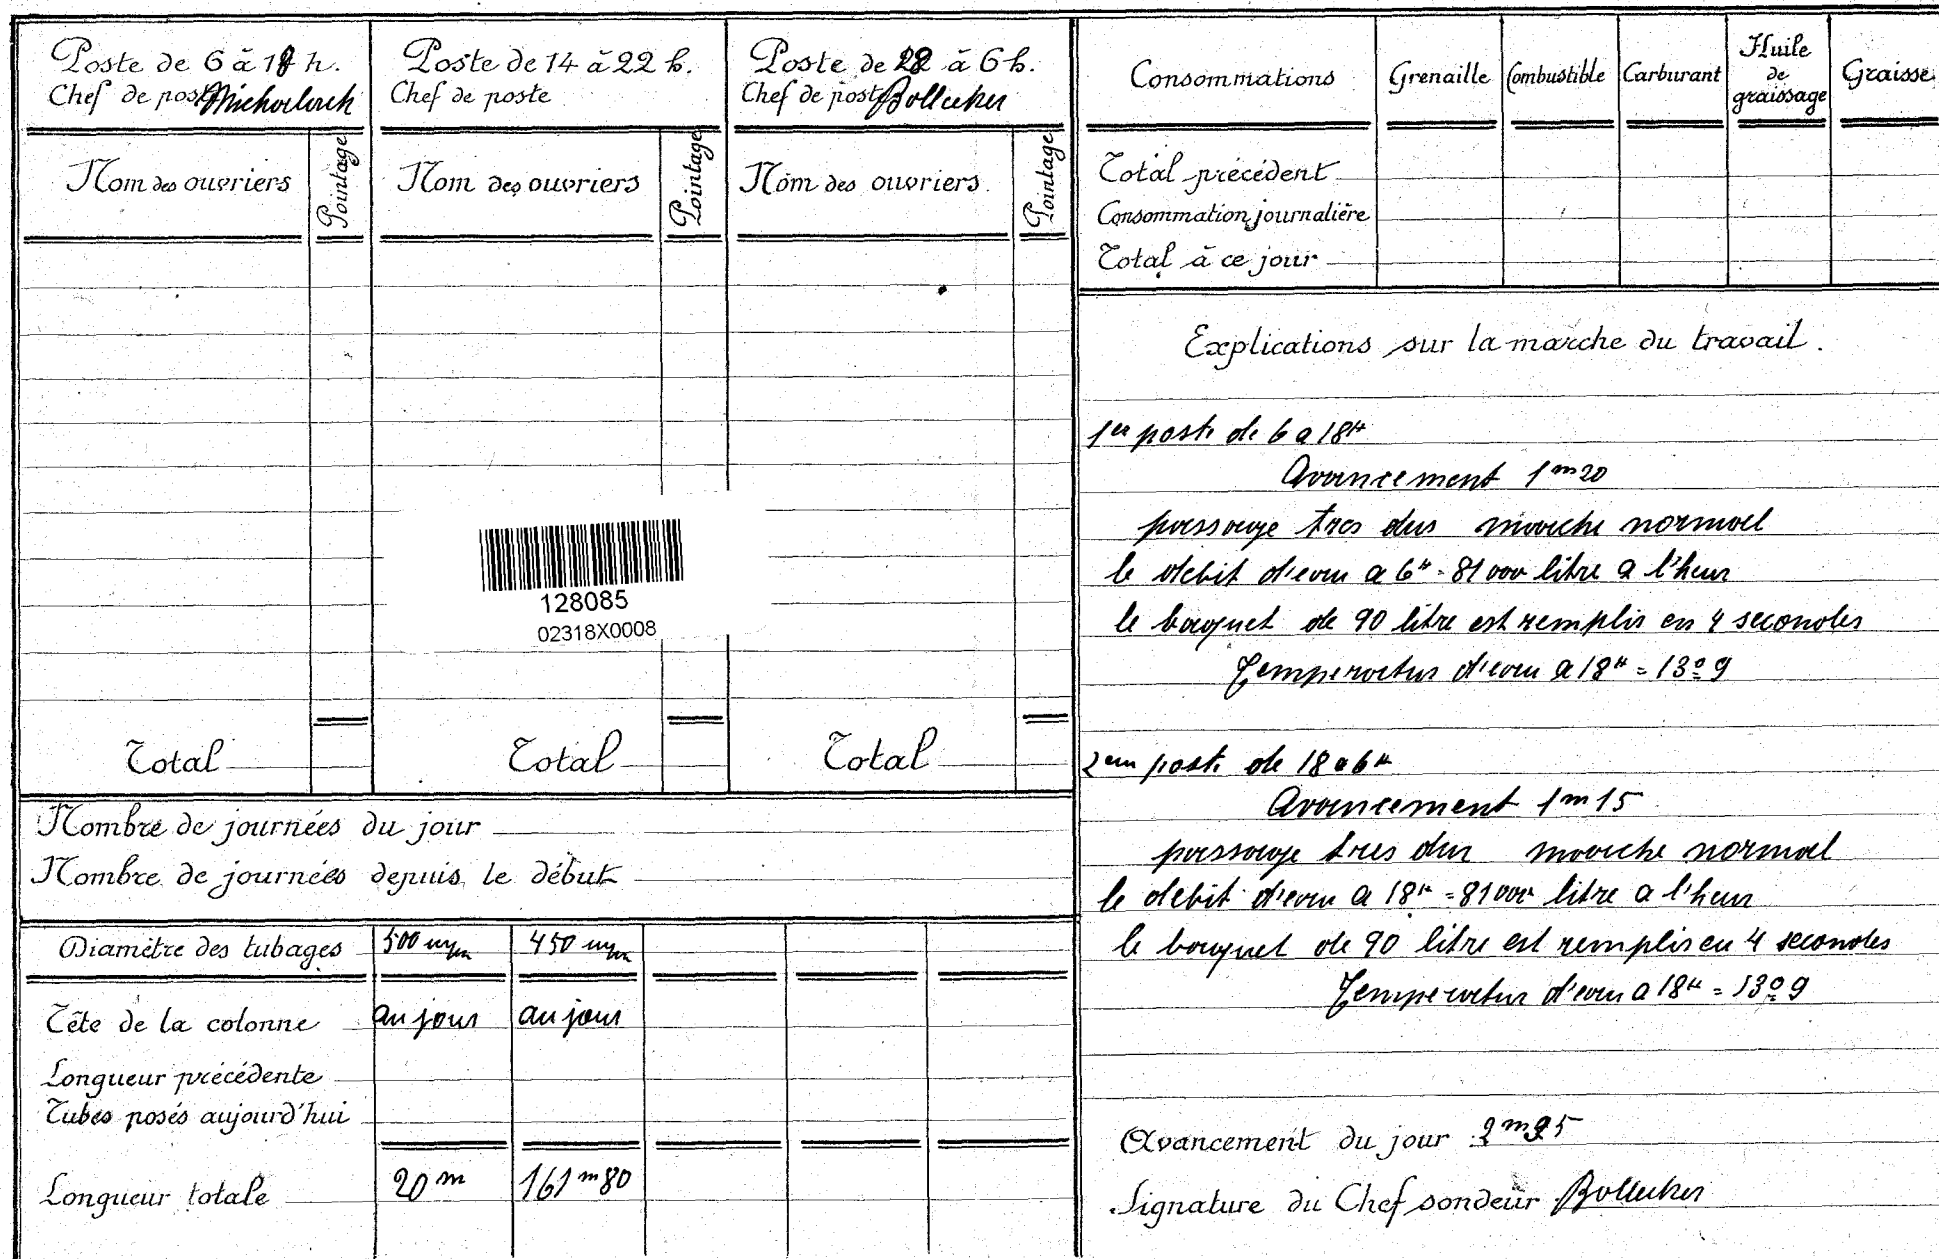 Poste de 6 à 18 h.
Chef de poste
Nom des ouvriers
Pointage
Total
Poste de 14 à 22 h.
Chef de poste
Nom des ouvriers
Pointage
Total
Poste de à 6 h.
Chef de poste Bollecker
Nom des ouvriers
Pointage
Total
128085
02318X0008
Nombre de journées du jour
Nombre de journées depuis le début
Diamètre des tubages 500 m/m 450 m/m
Tête de la colonne au jour au jour
Longueur précédente
Tubes posés aujourd'hui
Longueur totale 20 m 161 m 80
Consommations Grenaille Combustible Carburant Huile de graissage Graisse
Total précédent
Consommation journalière
Total à ce jour
Explications sur la marche du travail.
1er poste de 6 a 18H
Avancement 1m20
passage tres dur marche normal
le debit d'eau a 6H = 81000 litre a l'heur
le baquet de 90 litre est remplis en 4 secondes
Temperatur d'eau a 18H = 13º9
2em poste de 18 a 6H
Avancement 1m15
passage tres dur marche normal
le debit d'eau a 18H = 81000 litre a l'heur
le baquet de 90 litre est remplis en 4 secondes
Temperatur d'eau a 18H = 13º9
Avancement du jour
Signature du Chef sondeur Bollecker